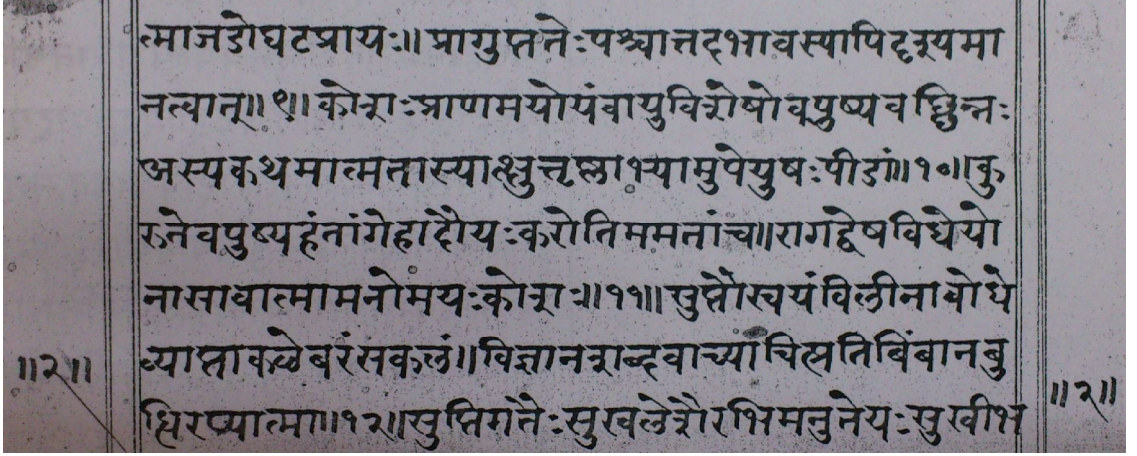 त्माजडोघटप्रायः॥ प्रागुत्पत्तेःपश्चात्तदभावस्यापिदृश्यमा
नत्वात्॥९॥ कोशःप्राणमयोयंवायुविशेषोवपुष्यवछिन्नः
अस्यकथमात्मतास्यात्क्षुत्तृष्णाभ्यामुपेयुषःपीडां॥१०॥कु
रुतेवपुष्यहंतांगेहादौयःकरोतिममतांच॥रागद्वेषविधेयो
नासावात्मामनोमयःकोशः॥११॥सुप्तौस्वयंविलीनाबोधे
व्याप्ताकळेवरंसकलं॥विज्ञानशब्दवाच्याचित्प्रतिबिंबानबु
द्धिरप्यात्मा॥१२॥सुप्तिगतैःसुखलेशैरभिमनुतेयःसुखीभ
॥२॥
॥२॥